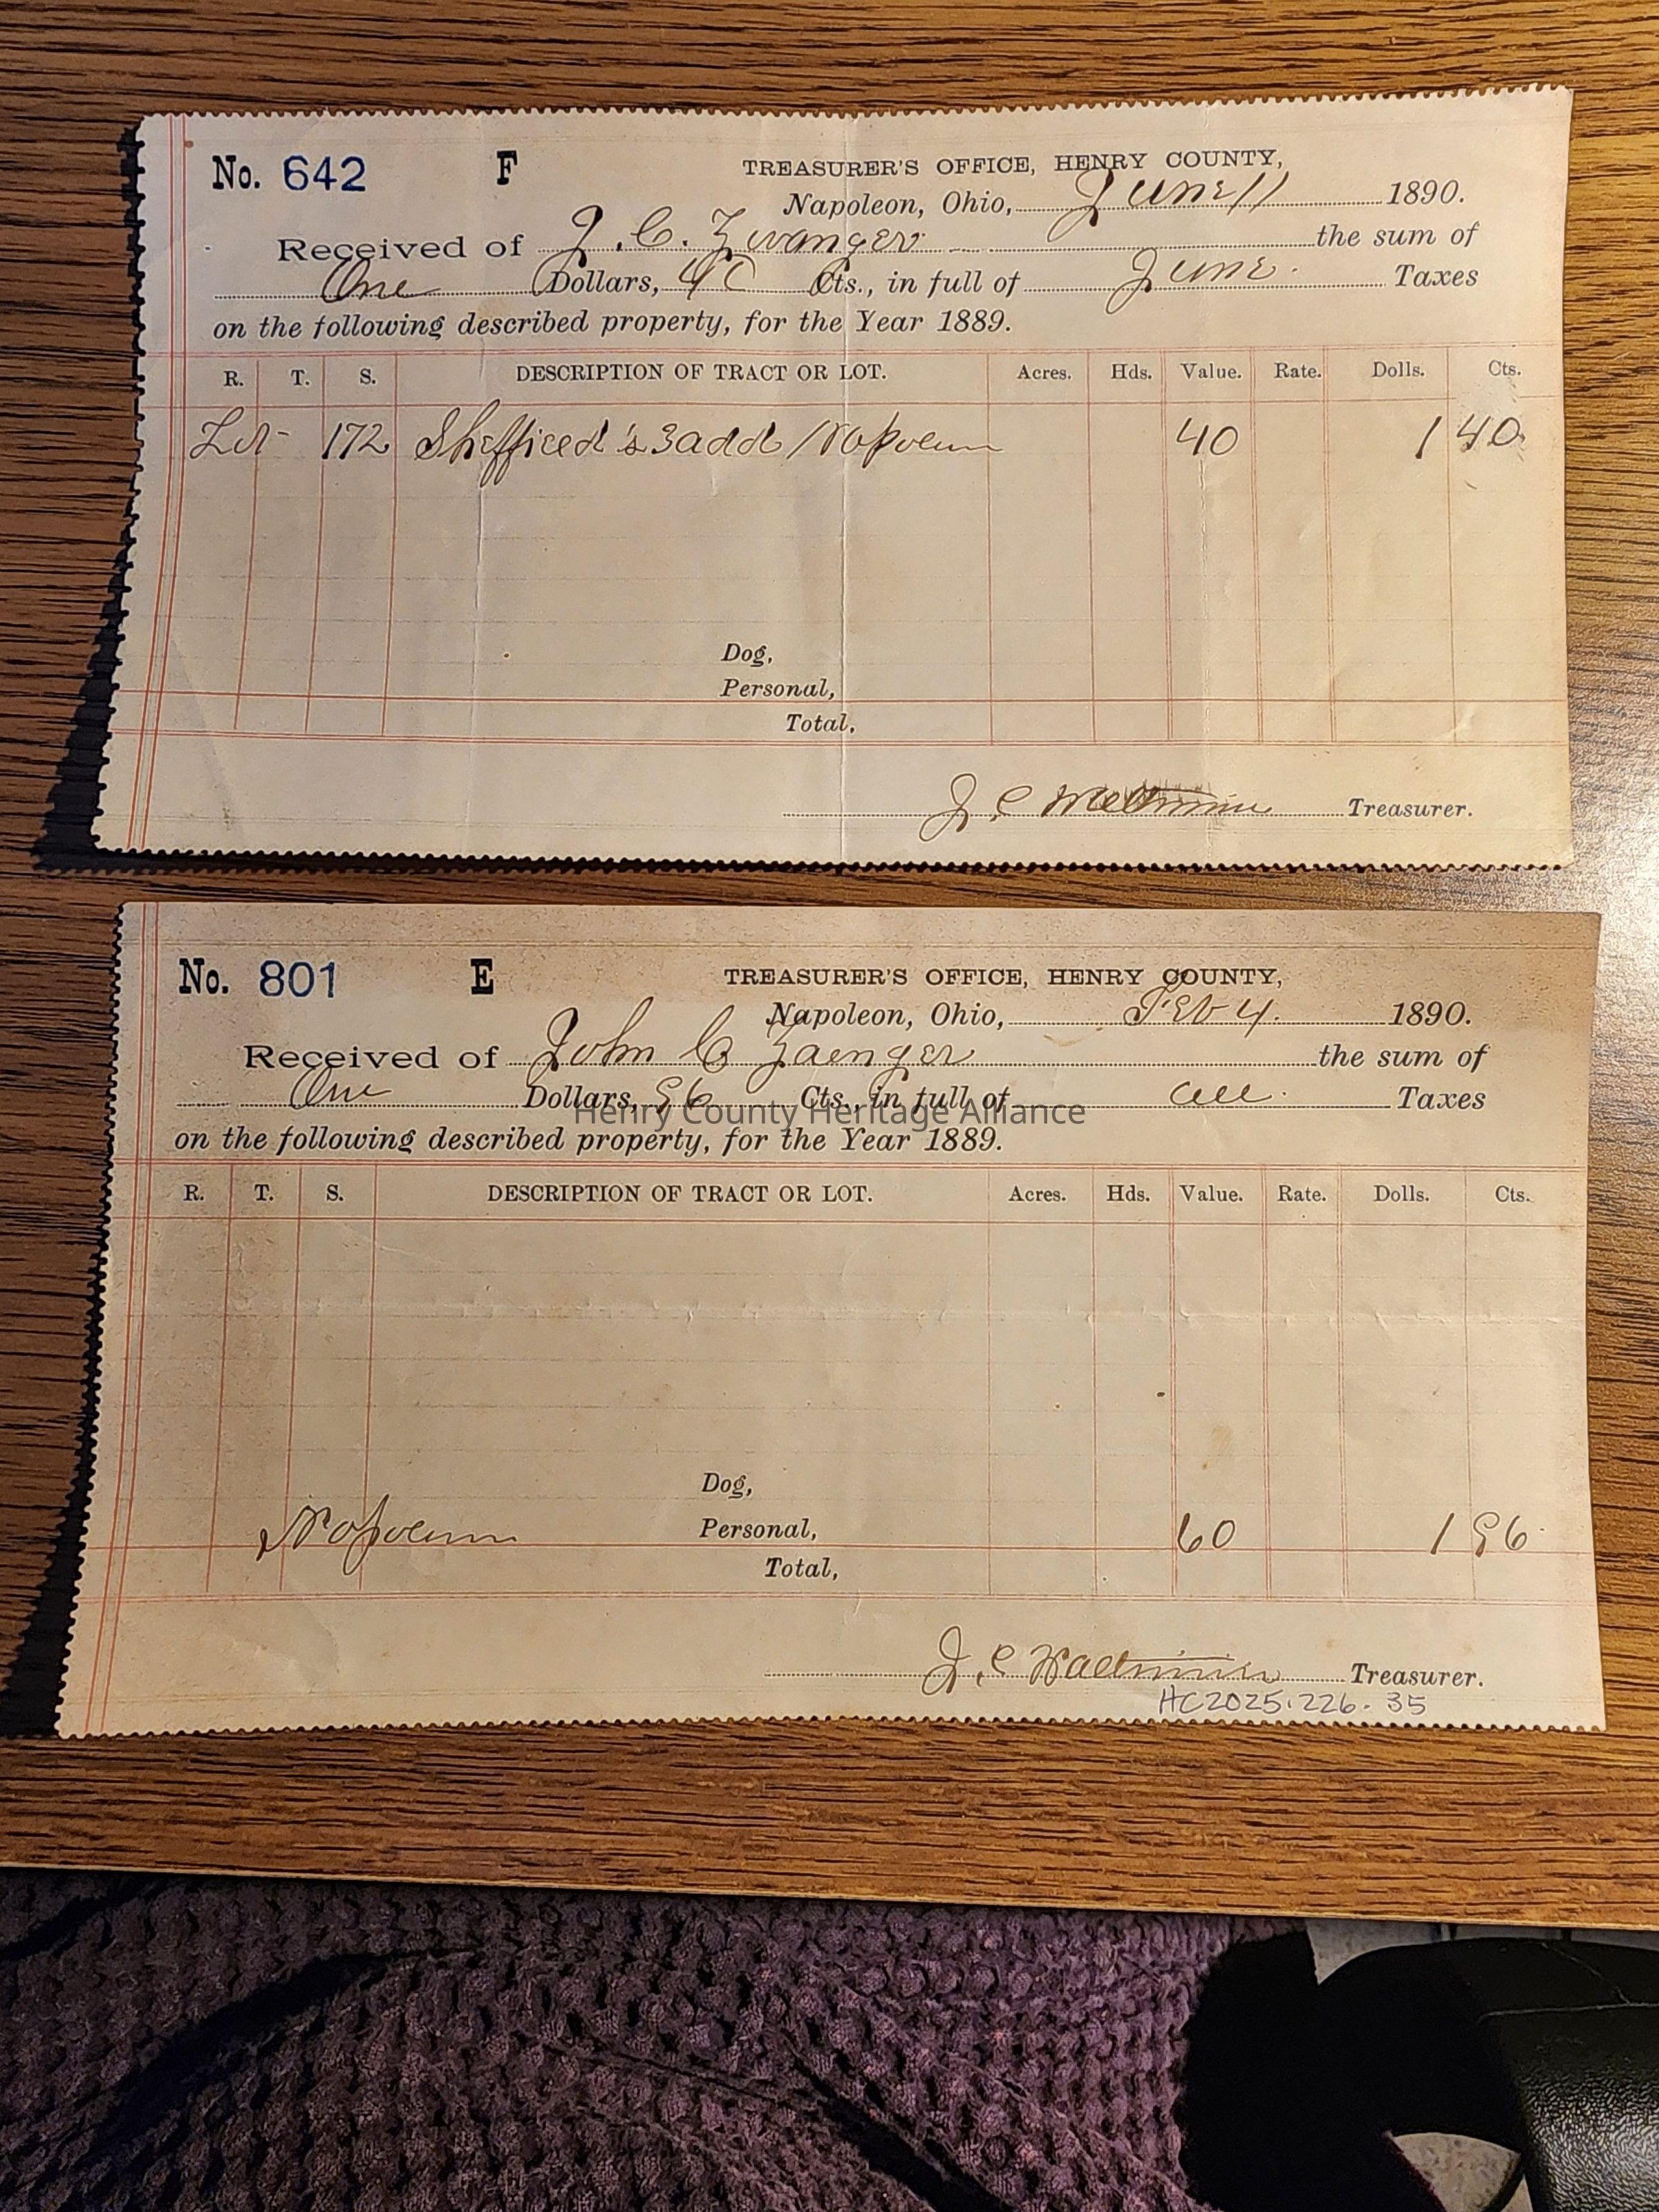 No. 642 F TREASURER'S OFFICE, HENRY COUNTY,
Napoleon, Ohio, June 11 1890.
Received of J. C. Zwanger the sum of
One Dollars, 40 Cts., in full of June. Taxes
on the following described property, for the Year 1889.
R. T. S. DESCRIPTION OF TRACT OR LOT. Acres. Hds. Value. Rate. Dolls. Cts.
Lot 172 Sheffield's 3 add Napoleon 40 1 40
Dog,
Personal,
Total,
J. C. Treasurer.
No. 801 E TREASURER'S OFFICE, HENRY COUNTY,
Napoleon, Ohio, Feb 4. 1890.
Received of John C Zaenger the sum of
One Dollars, 96 Cts., in full of all. Taxes
Henry County Heritage Alliance
on the following described property, for the Year 1889.
R. T. S. DESCRIPTION OF TRACT OR LOT. Acres. Hds. Value. Rate. Dolls. Cts.
Dog,
Napoleon Personal, 60 1 96
Total,
J. C. Treasurer.
HC2025.226.35